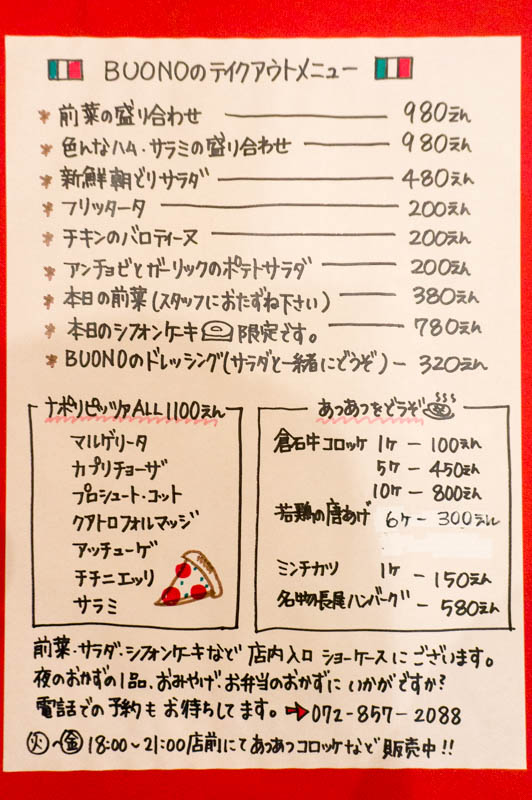 BUONOのテイクアウトメニュー
前菜の盛り合わせ 980えん
色んなハム・サラミの盛り合わせ 980えん
新鮮朝どりサラダ 480えん
フリッタータ 200えん
チキンのバロティーヌ 200えん
アンチョビとガーリックのポテトサラダ 200えん
本日の前菜(スタッフにおたずね下さい) 380えん
本日のシフォンケーキ 限定です。 780えん
BUONOのドレッシング(サラダと一緒にどうぞ) 320えん
ナポリピッツァALL1100えん
マルゲリータ
カプリチョーザ
プロシュート・コット
クアトロフォルマッジ
アッチューゲ
チチニエッリ
サラミ
あつあつをどうぞ
倉石牛コロッケ 1ケ - 100えん
5ケ - 450えん
10ケ - 800えん
若鶏の唐あげ 6ケ - 300えん
ミンチカツ 1ケ - 150えん
名物長屋ハンバーグ - 580えん
前菜・サラダ・シフォンケーキなど 店内入口 ショーケースにございます。
夜のおかずの1品、おみやげ、お弁当のおかずに いかがですか?
電話での予約も お待ちしてます。➡072-857-2088
㊋~㊎ 18:00~21:00店前にてあつあつコロッケなど 販売中!!